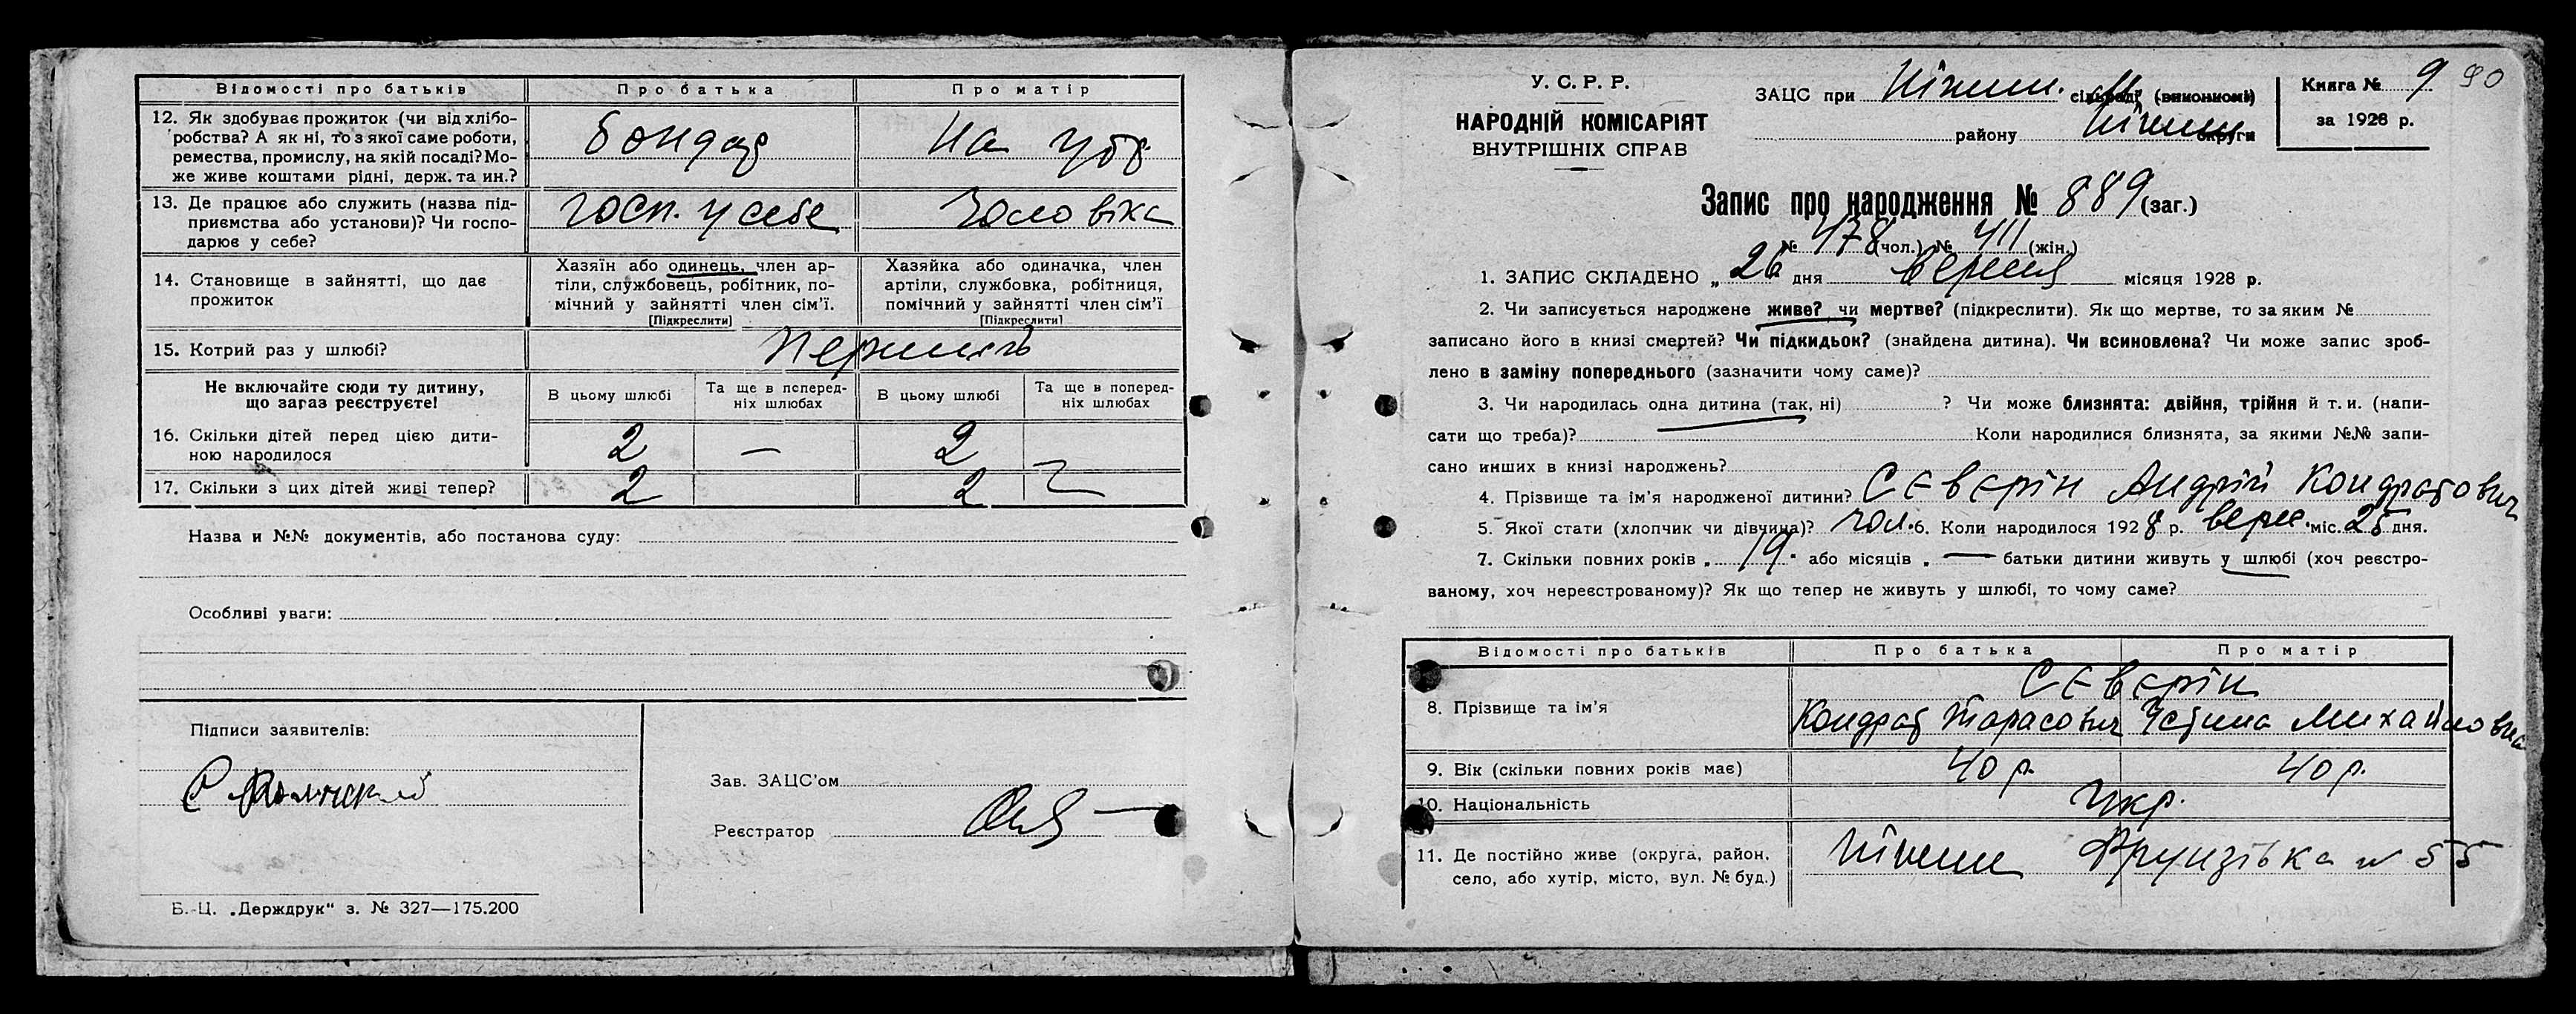 Відомості про батьків Про батька Про матір
12. Як здобуває прожиток (чи від хлібо-
робства? А як ні, то з якої саме роботи,
ремества, промислу, на якій посаді? Мо-
же живе коштами рідні, держ. та ин.?
бондар На утр.
13. Де працює або служить (назва під-
приємства або установи)? Чи госпо-
дарює у себе?
госп. у себе чоловіка
14. Становище в зайнятті, що дає
прожиток
Хазяїн або одинець, член ар-
тіли, службовець, робітник, по-
мічний у зайнятті член сім'ї.
[Підкреслити]
Хазяйка або одиначка, член
артіли, службовка, робітниця,
помічний у зайнятті член сім'ї
[Підкреслити]
15. Котрий раз у шлюбі?
Не включайте сюди ту дитину,
що зараз реєструєте!
В цьому шлюбі Та ще в поперед-
ніх шлюбах В цьому шлюбі Та ще в поперед-
ніх шлюбах
16. Скільки дітей перед цією дити-
ною народилося
2 — 2
17. Скільки з цих дітей живі тепер? 2 2
Назва и №№ документів, або постанова суду:
Особливі уваги:
Підписи заявителів:
Зав. ЗАЦС'ом
Реєстратор
Б.-Ц. „Держдрук“ з. № 327—175.200
У. С. Р. Р.
НАРОДНІЙ КОМІСАРІЯТ
ВНУТРІШНІХ СПРАВ
ЗАЦС при Ніжин. сільраді (виконкомі)
району Ніжин округи
Книга № 9 90
за 1928 р.
Запис про народження № 889 (заг.)
№ 478 (чол.) № 411 (жін.)
1. ЗАПИС СКЛАДЕНО „ 26 дня вересня місяця 1928 р.
2. Чи записується народжене живе? чи мертве? (підкреслити). Як що мертве, то за яким №
записано його в книзі смертей? Чи підкидьок? (знайдена дитина). Чи всиновлена? Чи може запис зроб-
лено в заміну попереднього (зазначити чому саме)?
3. Чи народилась одна дитина (так, ні) ? Чи може близнята: двійня, трійня й т. и. (напи-
сати що треба)? Коли народилися близнята, за якими №№ запи-
сано инших в книзі народжень?
4. Прізвище та ім'я народженої дитини? Сєвєрін Андрій Кондратович
5. Якої стати (хлопчик чи дівчина)? чол. 6. Коли народилося 1928 р. верес. міс. 25 дня.
7. Скільки повних років „ 19. або місяців „ — батьки дитини живуть у шлюбі (хоч реєстро-
ваному, хоч нереєстрованому)? Як що тепер не живуть у шлюбі, то чому саме?
Відомості про батьків Про батька Про матір
Сєвєрін
8. Прізвище та ім'я
Кондрат Тарасович Устина Михайловна
9. Вік (скільки повних років має) 40 р. 40 р.
10. Національність Укр.
11. Де постійно живе (округа, район,
село, або хутір, місто, вул. № буд.)
Ніжин Фрунзівка № 55